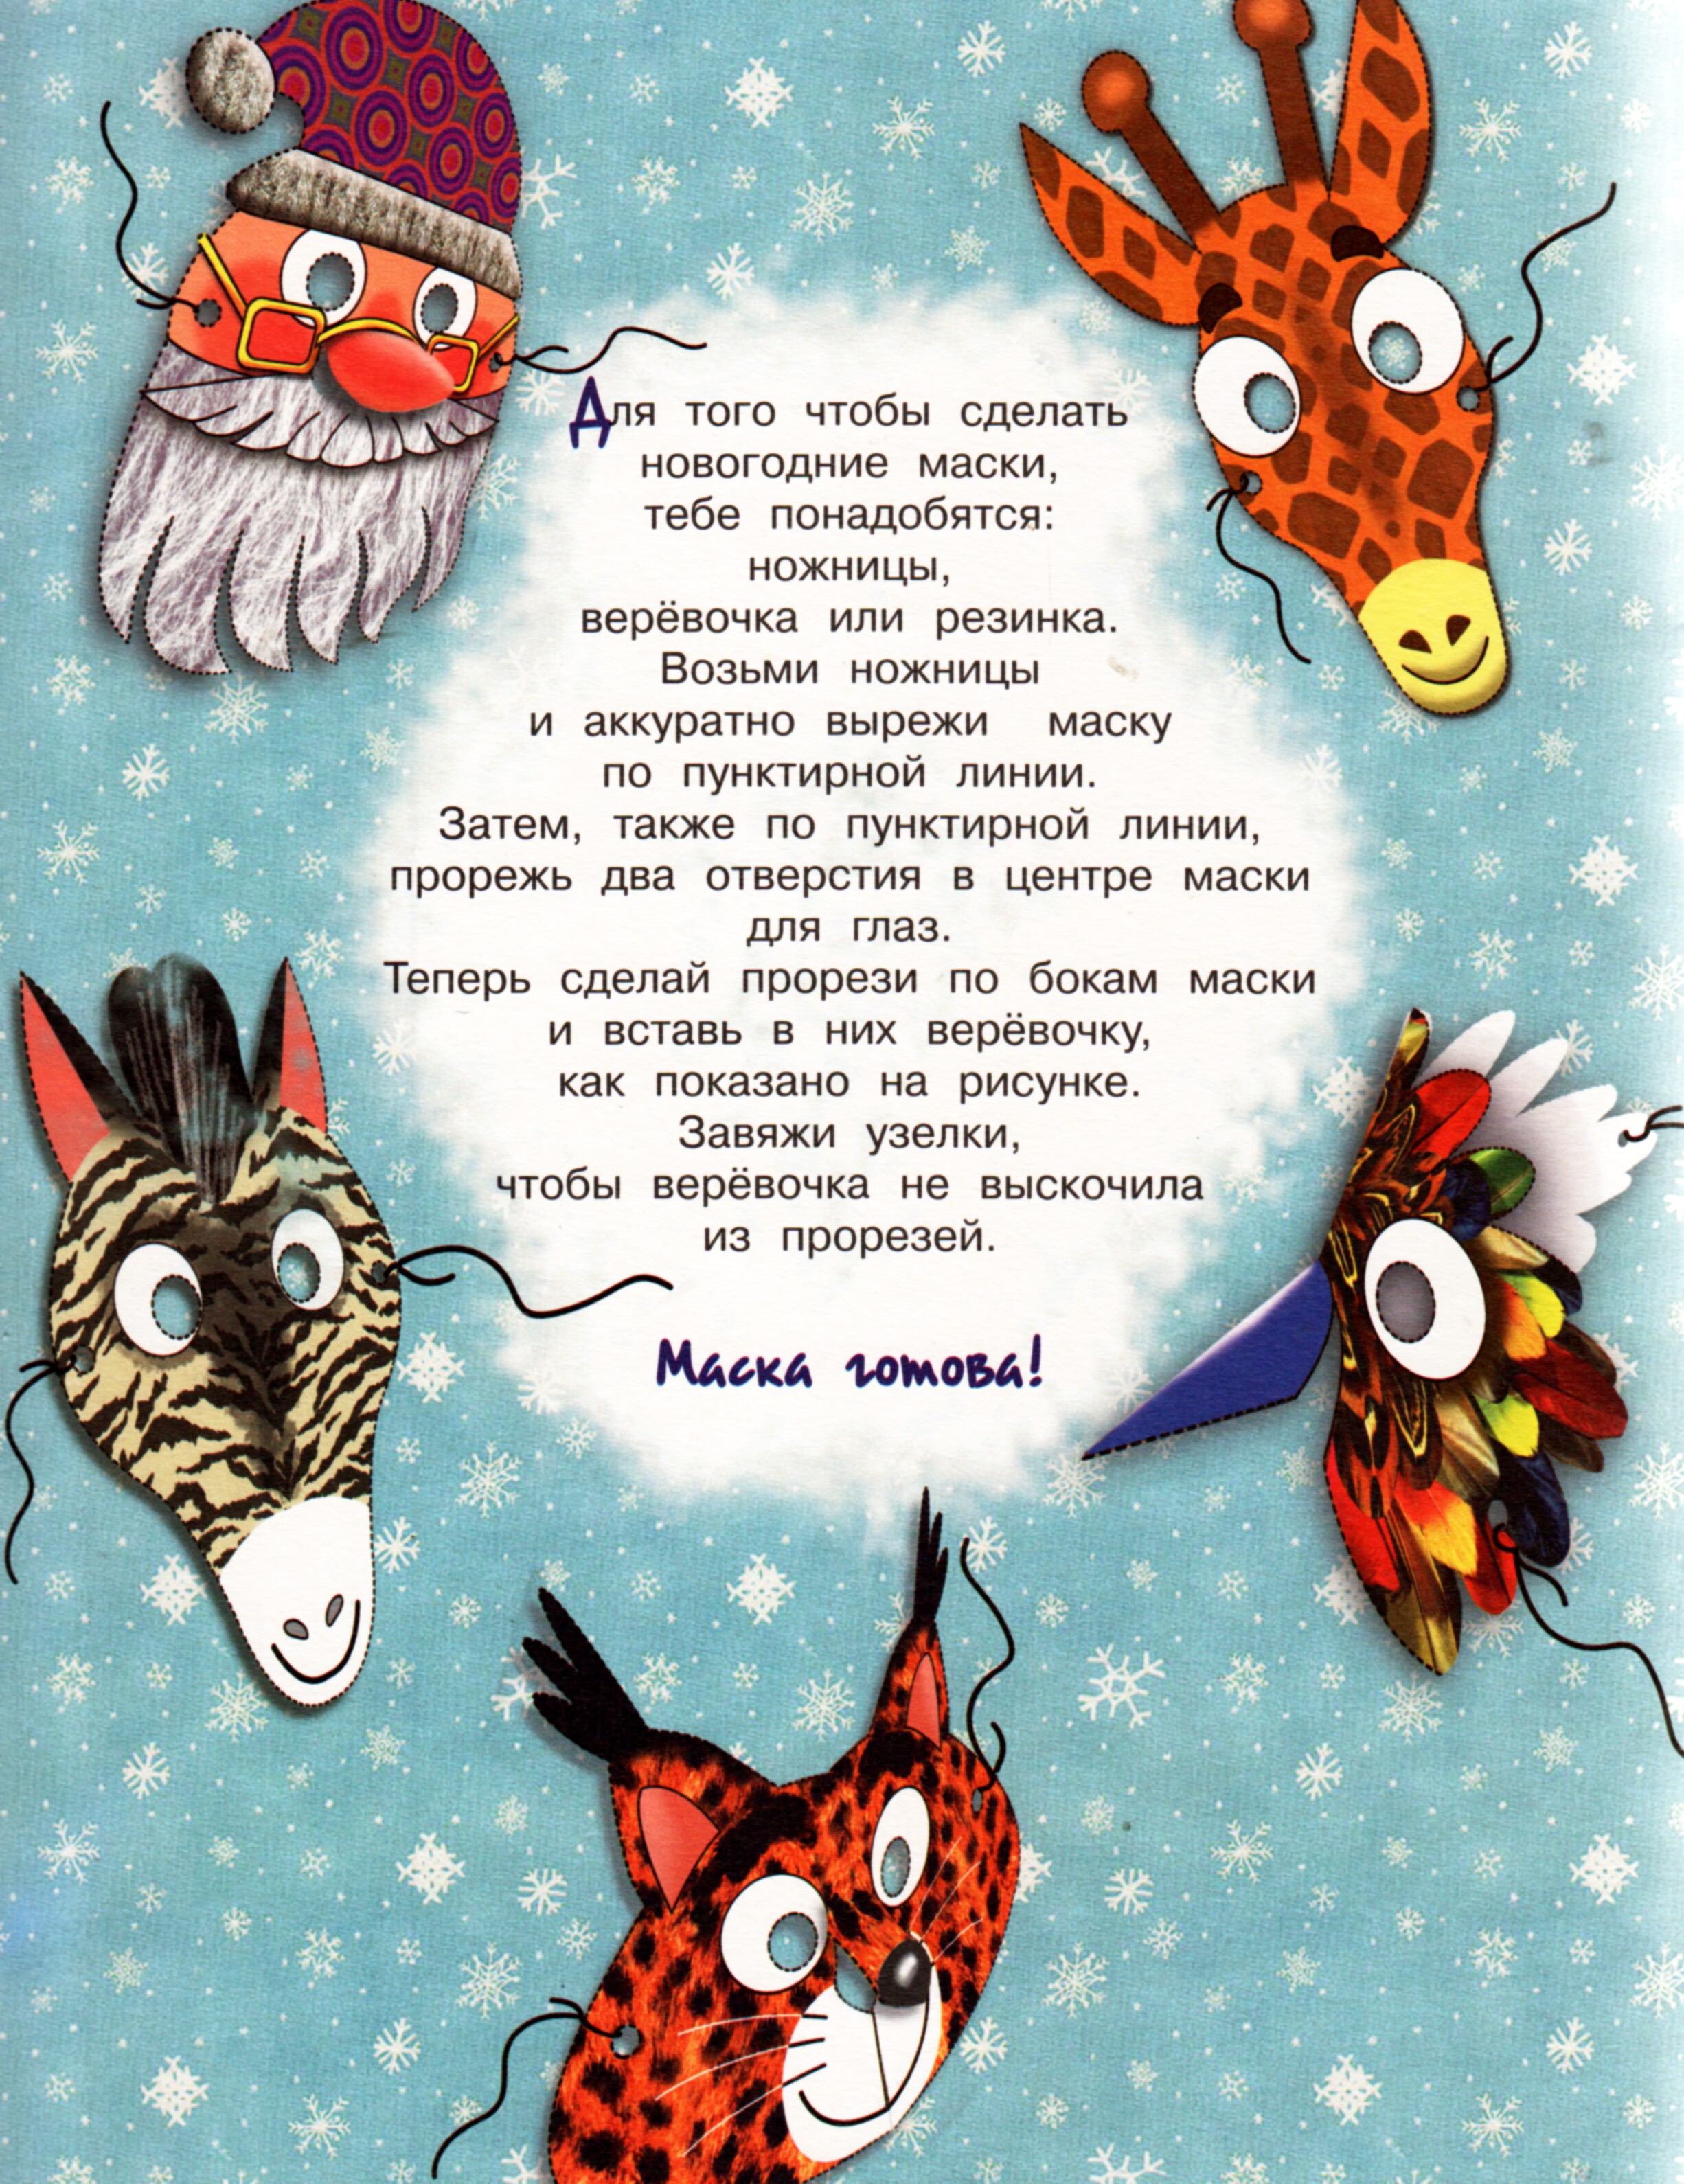 Для того чтобы сделать
новогодние маски,
тебе понадобятся:
ножницы,
верёвочка или резинка.
Возьми ножницы
и аккуратно вырежи маску
по пунктирной линии.
Затем, также по пунктирной линии,
прорежь два отверстия в центре маски
для глаз.
Теперь сделай прорези по бокам маски
и вставь в них верёвочку,
как показано на рисунке.
Завяжи узелки,
чтобы верёвочка не выскочила
из прорезей.
Маска готова!